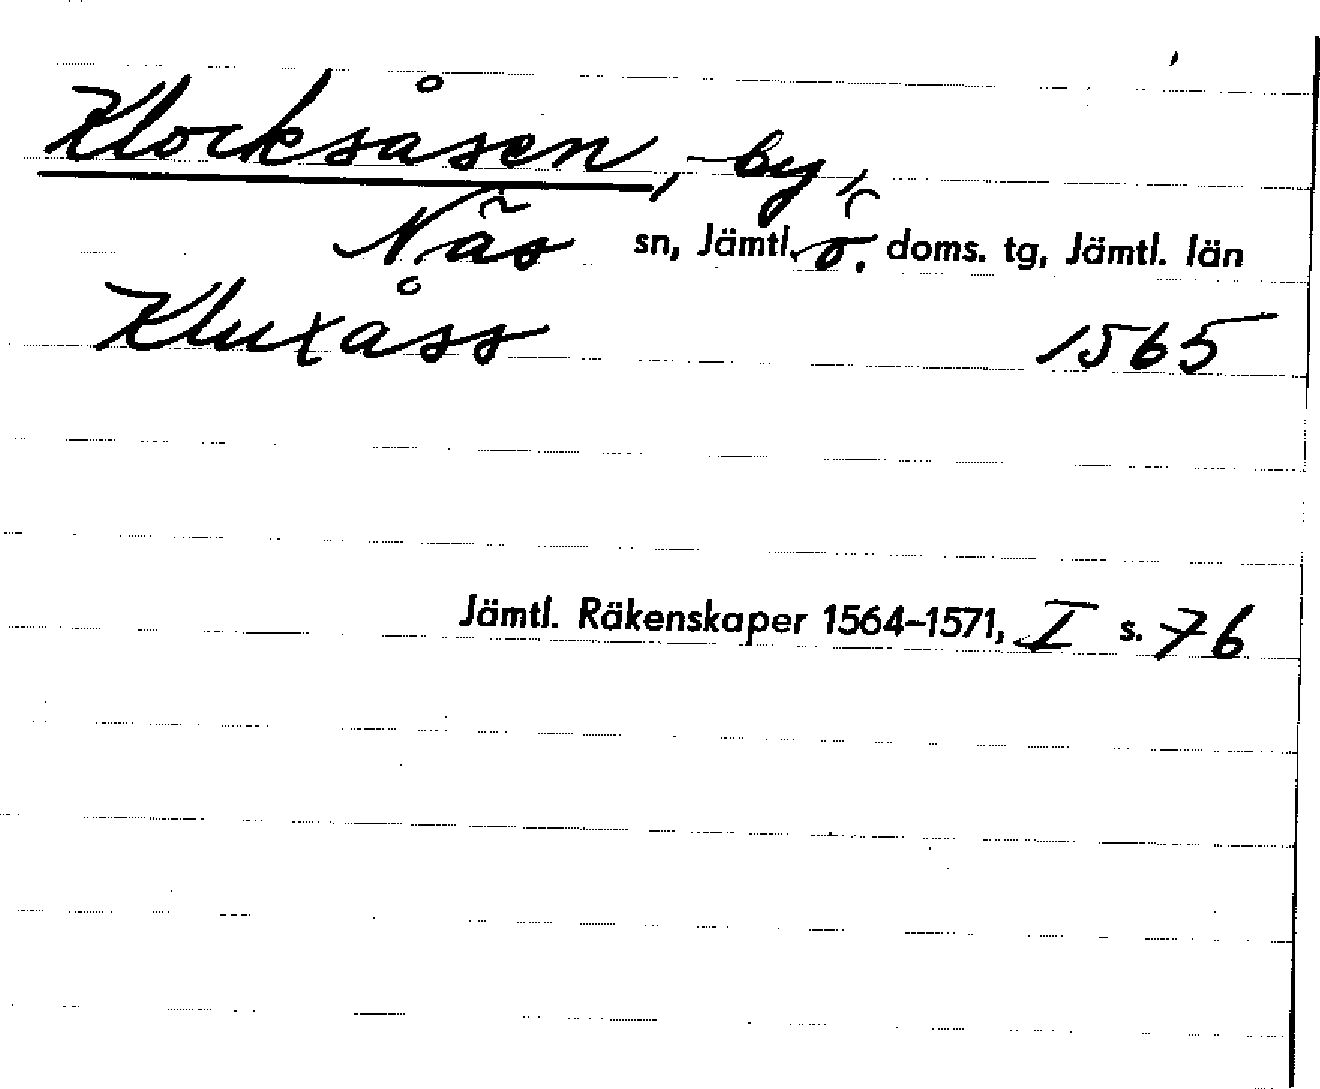 Klocksåsen, by,
Näs sn, Jämtl. ö. doms. tg, Jämtl. län
Kluxåss 1565
Jämtl. Räkenskaper 1564–1571, I s. 76